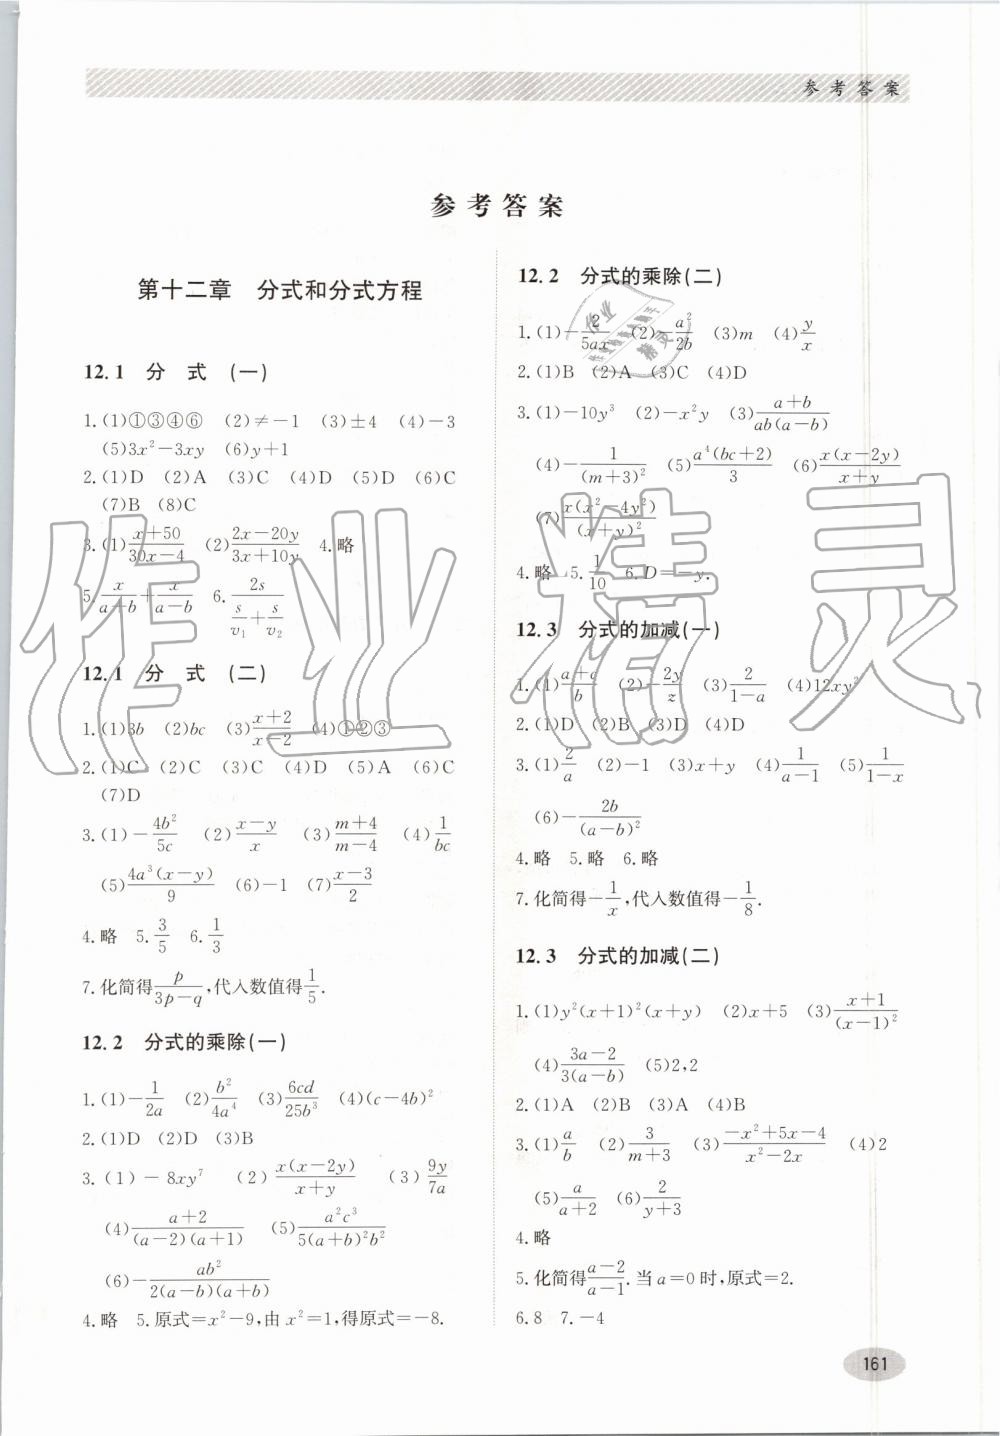 参考答案
参考答案
第十二章 分式和分式方程
12.1 分 式 (一)
1.(1)①③④⑥ (2)≠-1 (3)±4 (4)-3
(5)3x²-3xy (6)y+1
2.(1)D (2)A (3)C (4)D (5)D (6)C
(7)B (8)C
3.(1)\frac{x+50}{30x-4} (2)\frac{2x-20y}{3x+10y} 4.略
5.\frac{x}{a+b}+\frac{x}{a-b} 6.\frac{2s}{\frac{s}{v_1}+\frac{s}{v_2}}
12.1 分 式 (二)
1.(1)3b (2)bc (3)\frac{x+2}{x-2} (4)①②③
2.(1)C (2)C (3)C (4)D (5)A (6)C
(7)D
3.(1)-\frac{4b²}{5c} (2)\frac{x-y}{x} (3)\frac{m+4}{m-4} (4)\frac{1}{bc}
(5)\frac{4a³(x-y)}{9} (6)-1 (7)\frac{x-3}{2}
4.略 5.\frac{3}{5} 6.\frac{1}{3}
7.化简得\frac{p}{3p-q},代入数值得\frac{1}{5}.
12.2 分式的乘除(一)
1.(1)-\frac{1}{2a} (2)\frac{b²}{4a⁴} (3)\frac{6cd}{25b³} (4)(c-4b)²
2.(1)D (2)D (3)B
3.(1)-8xy⁷ (2)\frac{x(x-2y)}{x+y} (3)\frac{9y}{7a}
(4)\frac{a+2}{(a-2)(a+1)} (5)\frac{a²c³}{5(a+b)²b²}
(6)-\frac{ab²}{2(a-b)(a+b)}
4.略 5.原式=x²-9,由x²=1,得原式=-8.
12.2 分式的乘除(二)
1.(1)-\frac{2}{5ax} (2)-\frac{a²}{2b} (3)m (4)\frac{y}{x}
2.(1)B (2)A (3)C (4)D
3.(1)-10y³ (2)-x²y (3)\frac{a+b}{ab(a-b)}
(4)-\frac{1}{(m+3)²} (5)\frac{a⁴(bc+2)}{3} (6)\frac{x(x-2y)}{x+y}
(7)\frac{x(x²-4y²)}{(x+y)²}
4.略 5.\frac{1}{10} 6.D=-y.
12.3 分式的加减(一)
1.(1)\frac{a+c}{b} (2)-\frac{2y}{z} (3)\frac{2}{1-a} (4)12xy²
2.(1)D (2)B (3)D (4)D
3.(1)\frac{2}{a} (2)-1 (3)x+y (4)\frac{1}{a-1} (5)\frac{1}{1-x}
(6)-\frac{2b}{(a-b)²}
4.略 5.略 6.略
7.化简得-\frac{1}{x},代入数值得-\frac{1}{8}.
12.3 分式的加减(二)
1.(1)y²(x+1)²(x+y) (2)x+5 (3)\frac{x+1}{(x-1)²}
(4)\frac{3a-2}{3(a-b)} (5)2,2
2.(1)A (2)B (3)A (4)B
3.(1)\frac{a}{b} (2)\frac{3}{m+3} (3)\frac{-x²+5x-4}{x²-2x} (4)2
(5)\frac{a}{a+2} (6)\frac{2}{y+3}
4.略
5.化简得\frac{a-2}{a-1}.当a=0时,原式=2.
6.8 7.-4
161
作业精灵